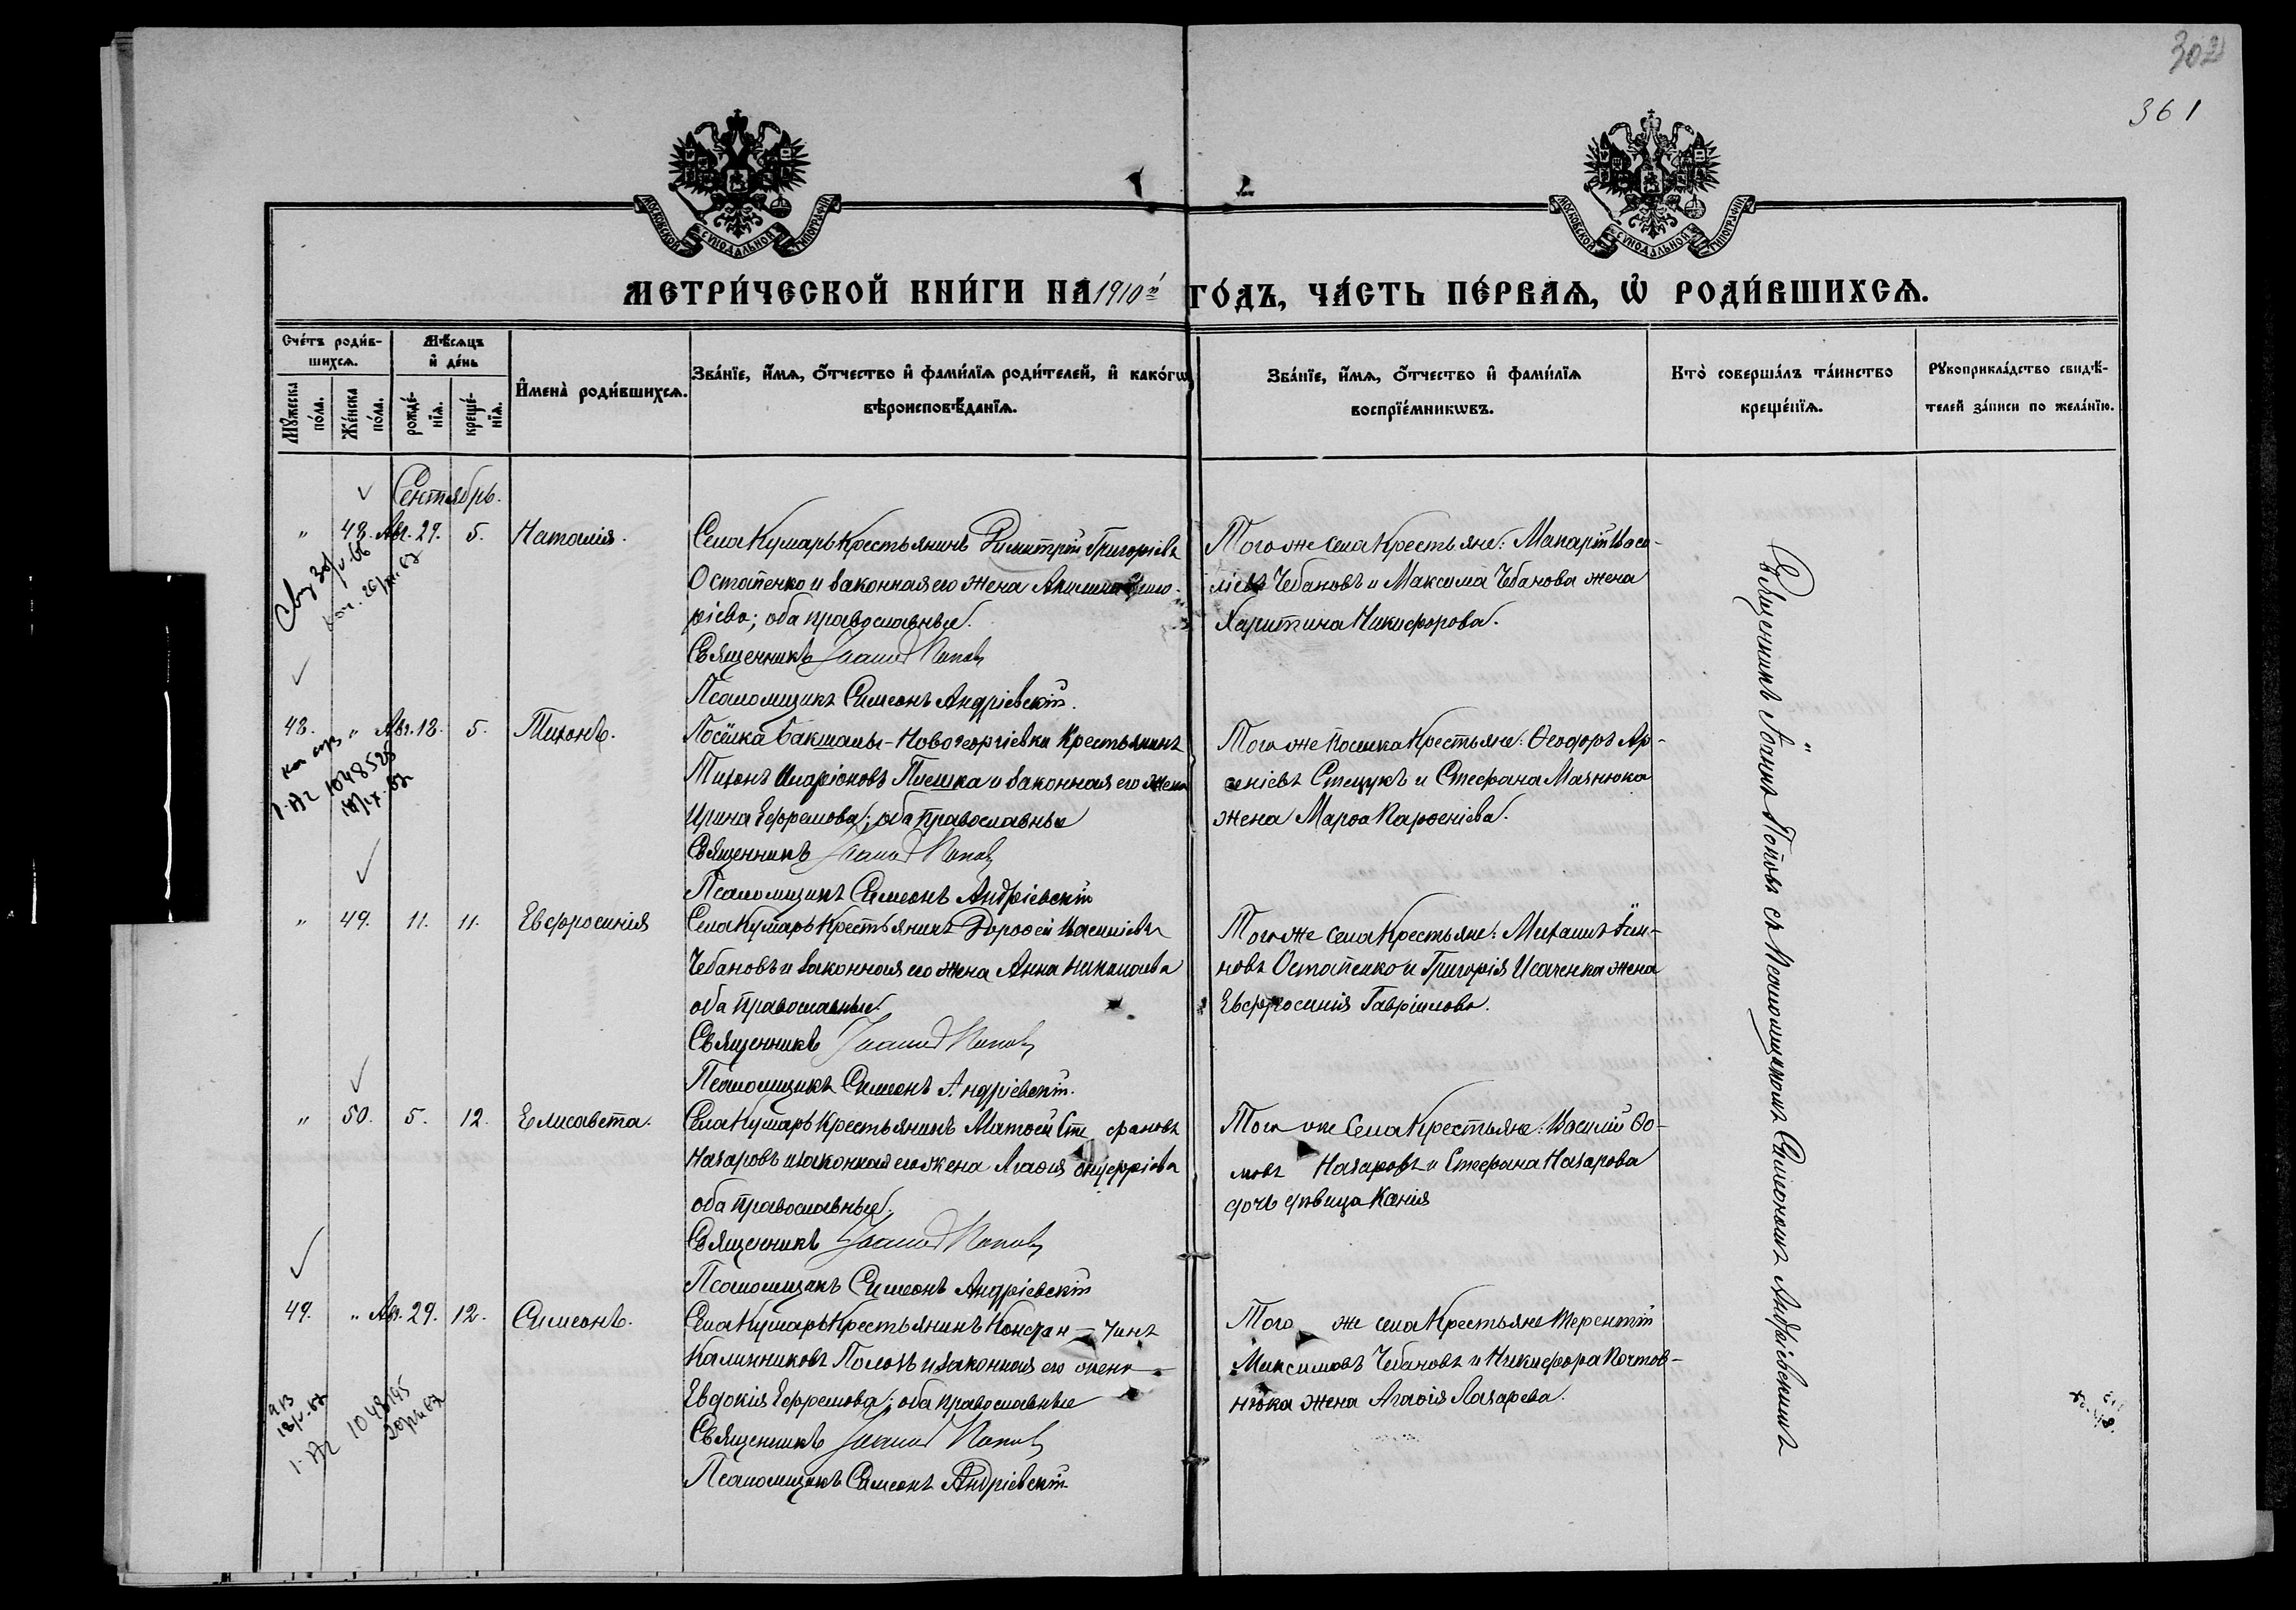 302
361
МОСКОВСКОЙ СУНОДАЛЬНОЙ ТИПОГРАФІИ
МОСКОВСКОЙ СУНОДАЛЬНОЙ ТИПОГРАФІИ
МЕТРИ́ЧЕСКОЙ КНИ́ГИ НА 1910й ГО́ДЪ, ЧА́СТЬ ПЕ́РВАѦ, Ѡ РОДИ́ВШИХСѦ.
Сче́тъ роди́в-
шихсѧ.
Мѣ́сѧцъ
и҆ де́нь
Мꙋ́жеска
по́ла.
Же́нска
по́ла.
рожде́-
нїѧ.
креще́-
нїѧ.
И҆мена̀ роди́вшихсѧ.
Зва́нїе, и҆́мѧ, ѻ҆́тчество и҆ фами́лїѧ роди́телей, и҆ како́гѡ
вѣроисповѣ́данїѧ.
Зва́нїе, и҆́мѧ, ѻ҆́тчество и҆ фами́лїѧ
воспрїе́мникѡвъ.
Кто̀ соверша́лъ та́инство
креще́нїѧ.
Рꙋкоприкла́дство свидѣ́-
телей за́писи по жела́нїю.
Сентябрь.
" 48. Авг. 29. 5. Наталія.
Села Кумаръ Крестьянинъ Димитрій Григоріевъ
Остапенко и законная его жена Акилина
ріева; оба православные.
Священникъ Іоаннъ Поповъ
Псаломщикъ Симеонъ Андріевскій.
Того же села Крестьяне: Макарій Васи-
ліевъ Чебановъ и Максима Чебанова жена
Харитина Никифорова.
48. " Авг. 18. 5. Тихонъ.
1048525
Посёлка Бакшалы-Новогеоргіевки Крестьянинъ
Тихонъ Иларіоновъ Плешка и законная его жена
Ирина Ефремова; оба православные
Священникъ Іоаннъ Поповъ
Псаломщикъ Симеонъ Андріевскій
Того же поселка Крестьяне: Ѳеодоръ Ар-
сеніевъ Стецукъ и Стефана Маянюка
жена Марѳа Парѳеніева.
" 49. 11. 11. Евфросинія
Села Кумаръ Крестьянинъ Дороѳей Василіевъ
Чебановъ и законная его жена Анна Николаева
оба православные.
Священникъ Іоаннъ Поповъ
Псаломщикъ Симеонъ Андріевскій.
Того же села Крестьяне: Михаилъ
новъ Остапенко и Григорія Исаченка жена
Евфросинія Гавріилова.
" 50. 5. 12. Елисавета.
Села Кумаръ Крестьянинъ Матѳей Сте фановъ
Назаровъ и законная его жена Агаѳія Онуфріева
оба православные.
Священникъ Іоаннъ Поповъ
Псаломщикъ Симеонъ Андріевскій
Того же села Крестьяне: Василій Ѳо-
мовъ Назаровъ и Стефана Назарова
дочь дѣвица Ксенія
49. " Авг. 29. 12. Симеонъ.
1048195
Села Кумаръ Крестьянинъ Констан - тинъ
Калинниковъ Поповъ и законная его жена
Евдокія Ефремова; оба православные
Священникъ Іоаннъ Поповъ
Псаломщикъ Симеонъ Андріевскій
Того же села Крестьяне Терентій
Максимовъ Чебановъ и Никифора Почтов-
нюка жена Агаѳія Лазарева.
Священникъ Іоаннъ Поповъ съ Псаломщикомъ Симеономъ Андріевскимъ